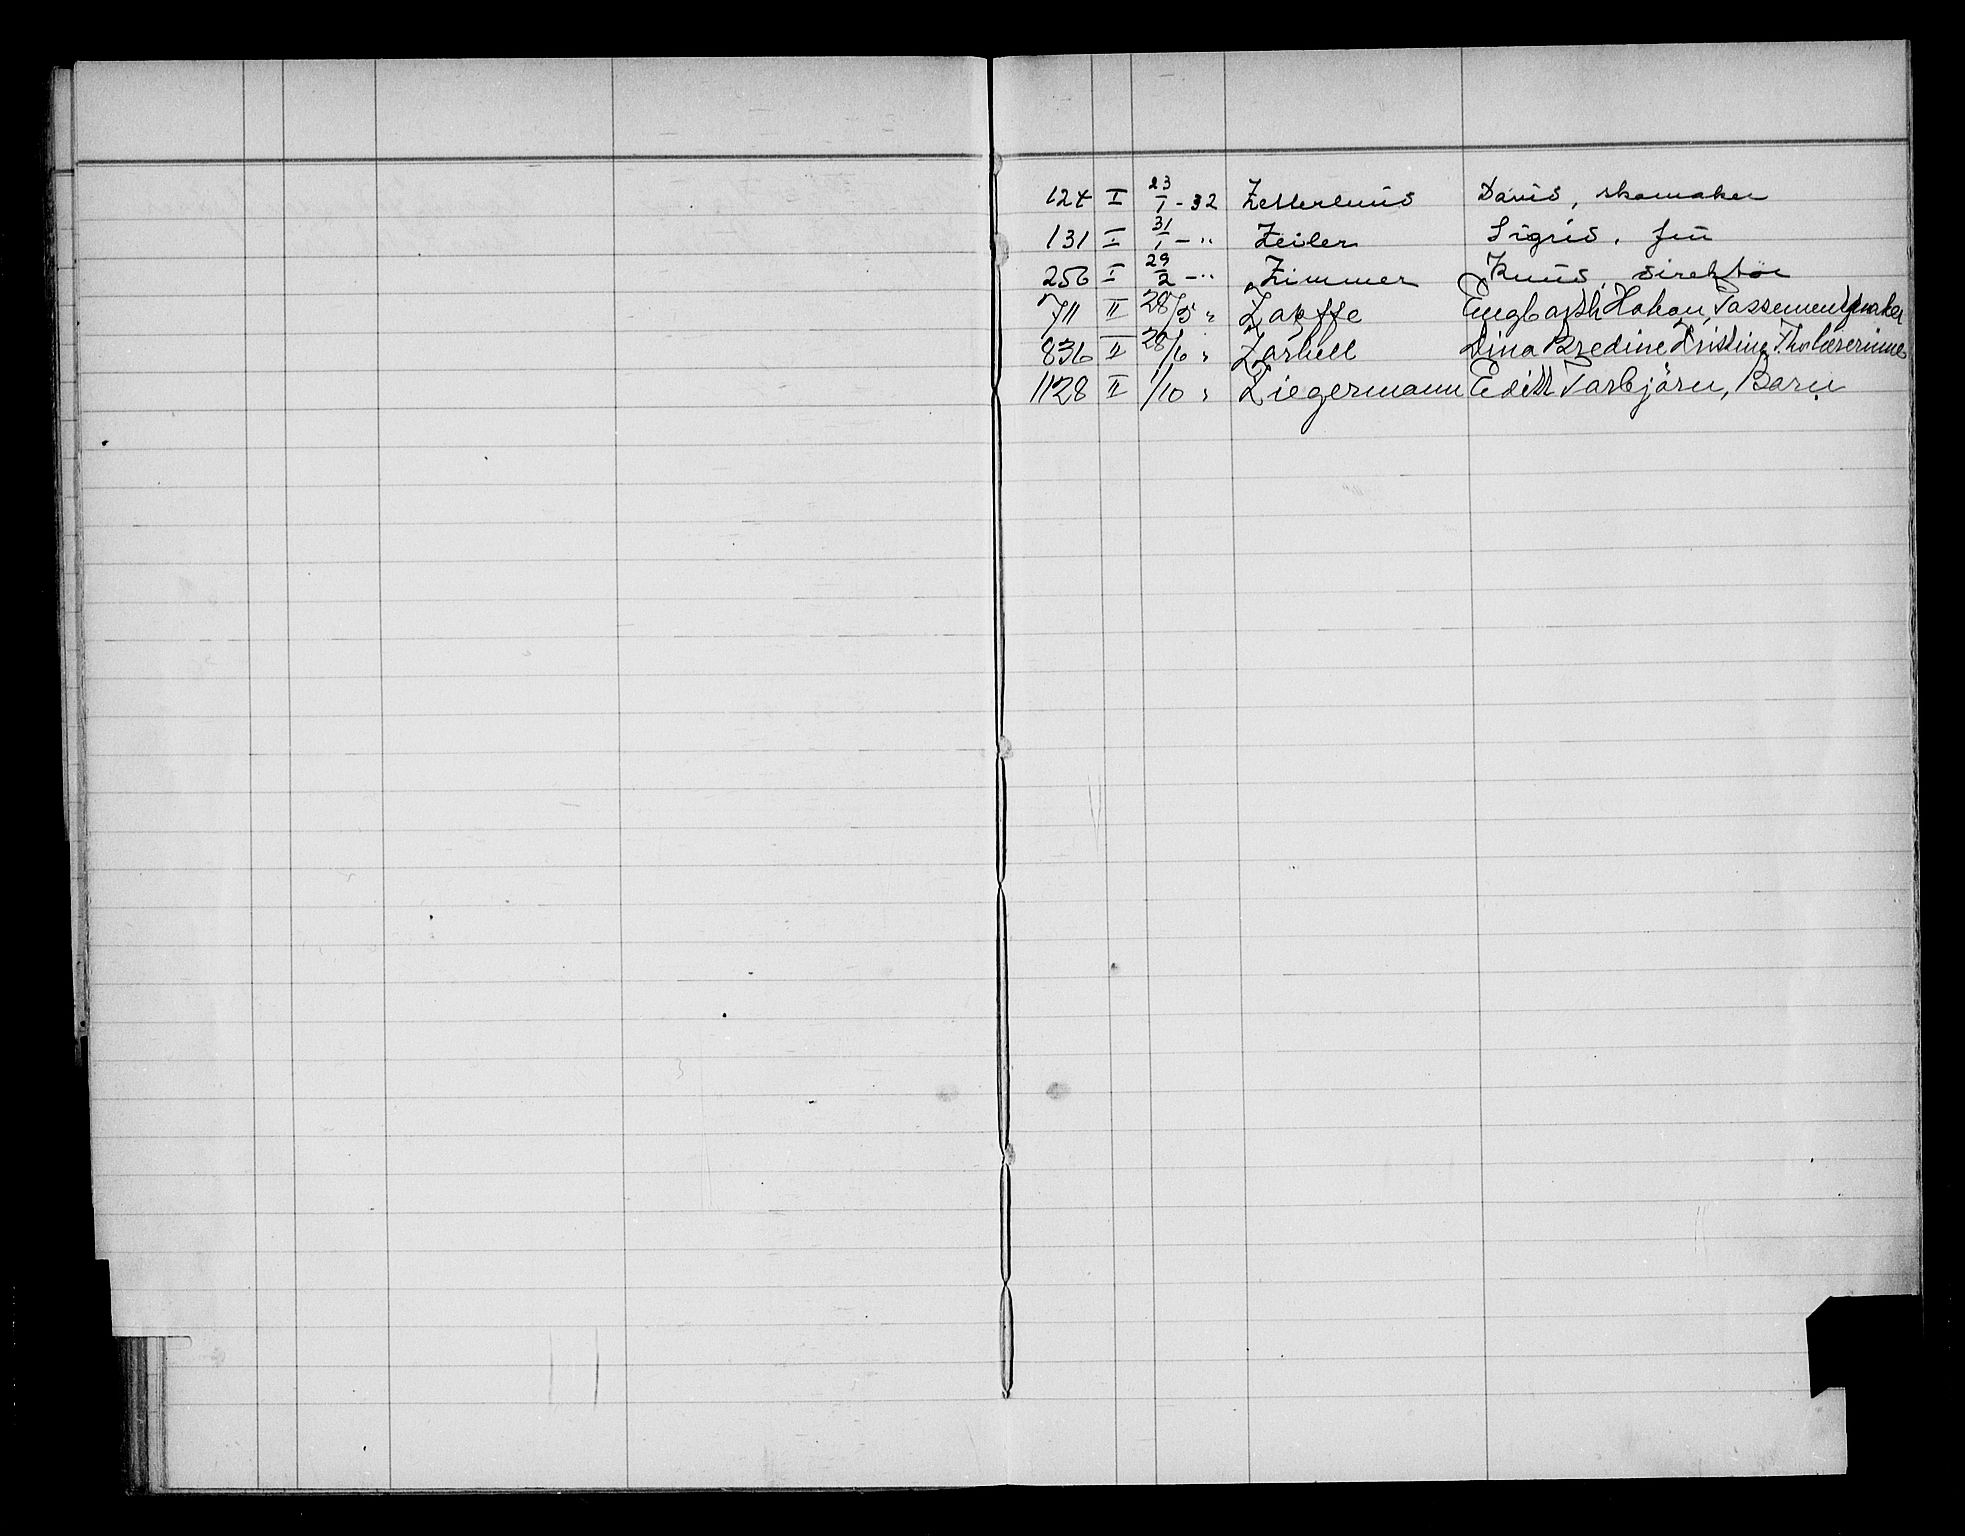 124 I 23/1 - 32 Zetterlund David, skomaker
131 I 31/1 - " Zeiler Sigrid, frü
256 I 29/2 - " Zimmer Knud, direktør
711 II 28/5 " Zapffe Engbarth Hakon, Passementmaker
836 II 28/6 " Zarbell Dina Bredine Kristine Th. Lærerinne
1128 II 1/10 " Ziegermann Edith Torbjörn, Barn